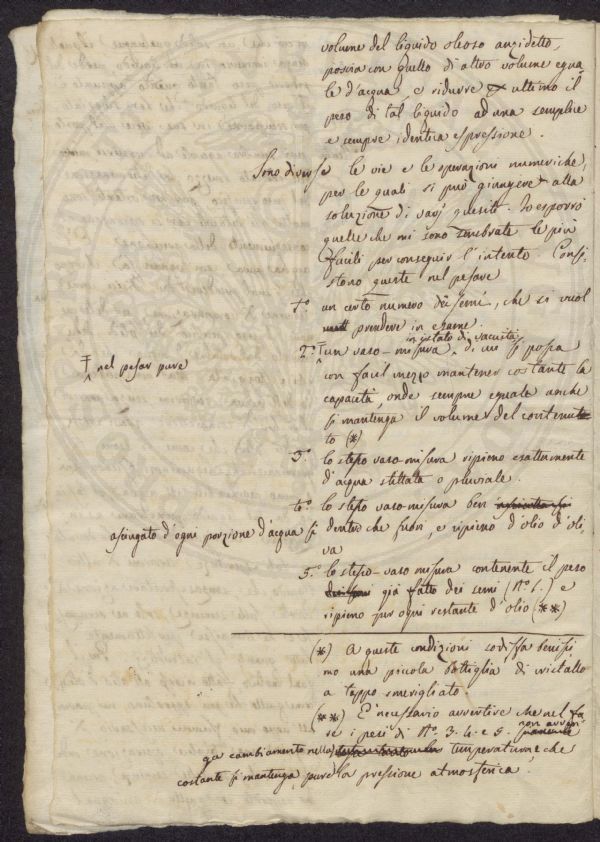 volume del liquido oleoso anzidetto,
poscia con quello di altro volume egua
le d'acqua e ridurre per ultimo il
peso di tal liquido ad una semplice
e sempre identica espressione.
Sono diverse le vie e le operazioni numeriche,
per le quali si può giungere alla
soluzione di varj quesiti. Io esporrò
quelle che mi sono sembrate le più
facili per conseguir l'intento. Consi
stono queste nel pesare
1.° un certo numero di semi, che si vuol
prendere in esame.
in istato di vacuità
2.° un vaso-misura, di cui si possa
Ŧ nel pesar pure
con facil mezzo mantener costante la
capacità, onde sempre eguale anche
si mantenga il volume del contenu
to (*)
3.° lo stesso vaso-misura ripieno esattamente
d'acqua stillata o pluviale.
4.° lo stesso vaso-misura ben
asciugato d'ogni porzione d'acqua sì dentro che fuori, e ripieno d'olio d'oli
va
5.° lo stesso-vaso misura contenente il peso
già fatto dei semi (N.° 1.) e
ripieno pur ogni restante d'olio (**)
(*) A queste condizioni sodisfa benissi
mo una piccola bottiglia di cristallo
a tappo smerigliato.
(**) È necessario avvertire che nel fa
re i pesi di N.° 3. 4. e 5. non avven
ga cambiamento nella temperatura, e che
costante si mantenga pure la pressione atmosferica.